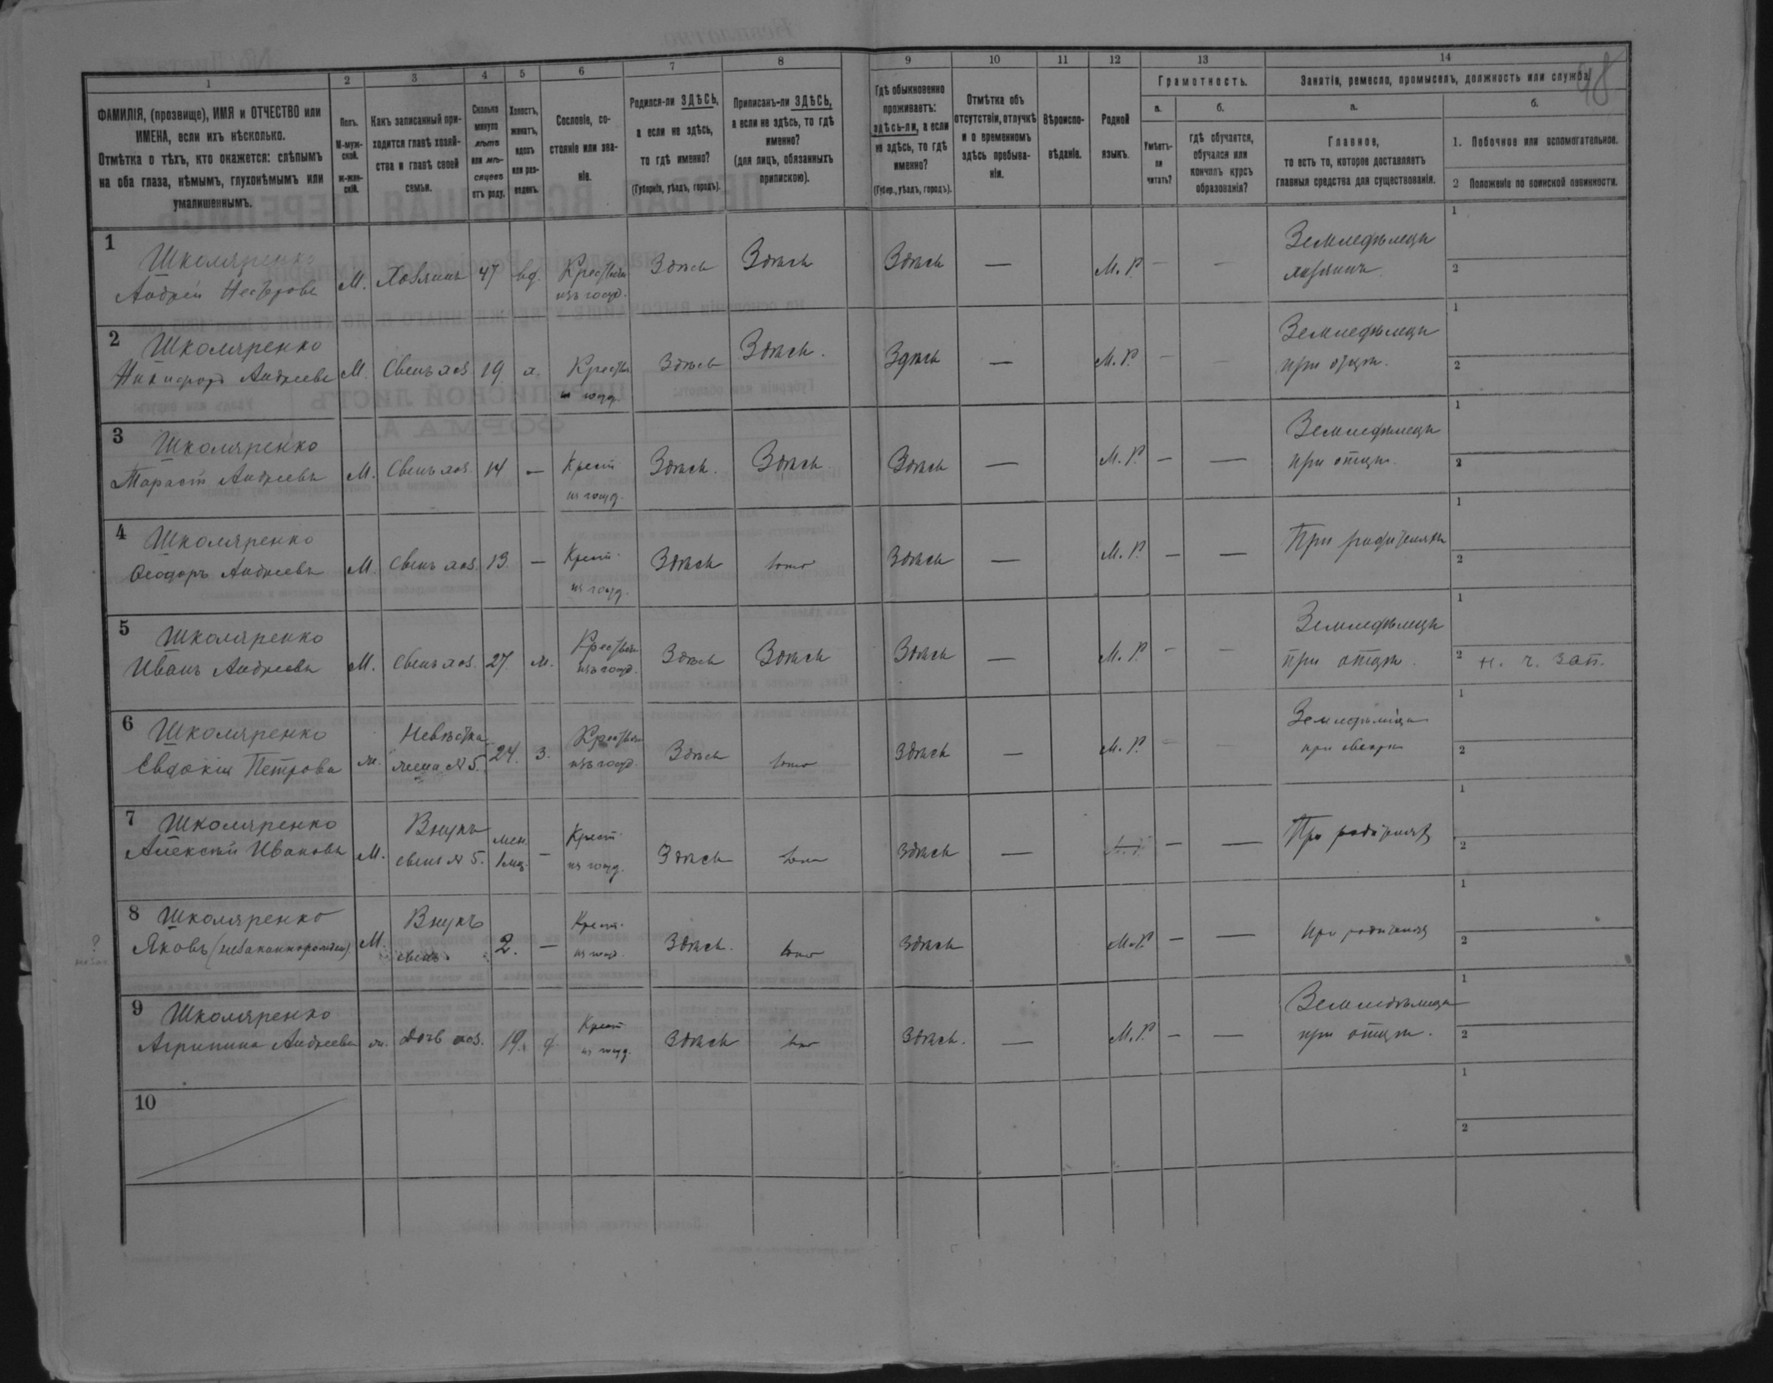 98
1 2 3 4 5 6 7 8 9 10 11 12 13 14
ФАМИЛІЯ, (прозвище), ИМЯ и ОТЧЕСТВО или
ИМЕНА, если ихъ нѣсколько.
Отмѣтка о тѣхъ, кто окажется: слѣпымъ
на оба глаза, нѣмымъ, глухонѣмымъ или
умалишеннымъ.
Полъ.
М-муж-
ской.
ж-жен-
скій.
Какъ записанный при-
ходится главѣ хозяй-
ства и главѣ своей
семьи.
Сколько
минуло
лѣтъ
или мѣ-
сяцевъ
отъ роду.
Холостъ,
женатъ,
вдовъ
или раз-
веденъ.
Сословіе, со-
стояніе или зва-
ніе.
Родился-ли ЗДѢСЬ,
а если не здѣсь,
то гдѣ именно?
(Губернія, уѣздъ, городъ).
Приписанъ-ли ЗДѢСЬ,
а если не здѣсь, то гдѣ
именно?
(для лицъ, обязанныхъ
припискою).
Гдѣ обыкновенно
проживаетъ:
здѣсь-ли, а если
не здѣсь, то гдѣ
именно?
(Губер., уѣздъ, городъ).
Отмѣтка объ
отсутствіи, отлучкѣ
и о временномъ
здѣсь пребыва-
ніи.
Вѣроиспо-
вѣданіе.
Родной
языкъ.
Грамотность.
а.
Умѣетъ-
ли
читать?
б.
гдѣ обучается,
обучался или
кончилъ курсъ
образованія?
Занятіе, ремесло, промыселъ, должность или служба.
а.
Главное,
то есть то, которое доставляетъ
главныя средства для существованія.
б.
1. Побочное или вспомогательное.
2 Положеніе по воинской повинности.
1 Школяренко М. Хозяинъ 47 вд. Здѣсь Здѣсь Здѣсь — М. Р. — — Земледѣлецъ 1
Андрей хозяинъ 2
2 Школяренко М. 19 х. Здѣсь Здѣсь. Здѣсь — М. Р. — — Земледѣлецъ 1
Никифоръ Андреевъ при отцѣ. 2
3 Школяренко М. 14 — Крест. Здѣсь. Здѣсь Здѣсь — М. Р. — — Земледѣлецъ 1
Тарасъ Андреевъ из госуд. при отцѣ. 2
4 Школяренко М. 13 — Крест. Здѣсь тоже Здѣсь — М. Р. — — При родителяхъ 1
Ѳеодоръ Андреевъ из госуд. 2
5 Школяренко М. 27 ж. Здѣсь Здѣсь Здѣсь — М. Р. — — Земледѣлецъ 1
Иванъ Андреевъ изъ госуд. при отцѣ. 2 н. ч. зап.
6 Школяренко ж. Невѣстка 24. з. Здѣсь тоже Здѣсь — М. Р. — — 1
Евдокія Петрова жена № 5. изъ госуд. при свекрѣ 2
7 Школяренко М. Внукъ — Крест. Здѣсь тоже Здѣсь — — — При родителяхъ 1
Алексѣй Ивановъ № 5. из госуд. 2
8 Школяренко М. Внукъ 2. — Крест. Здѣсь. тоже Здѣсь М. Р. — — При родителяхъ 1
Яковъ из госуд. 2
9 Школяренко ж. дочь хоз. 19. Крест. Здѣсь тоже Здѣсь. — М. Р. — — Земледѣлица 1
Агрипина Андреева из госуд. при отцѣ. 2
10 1
2